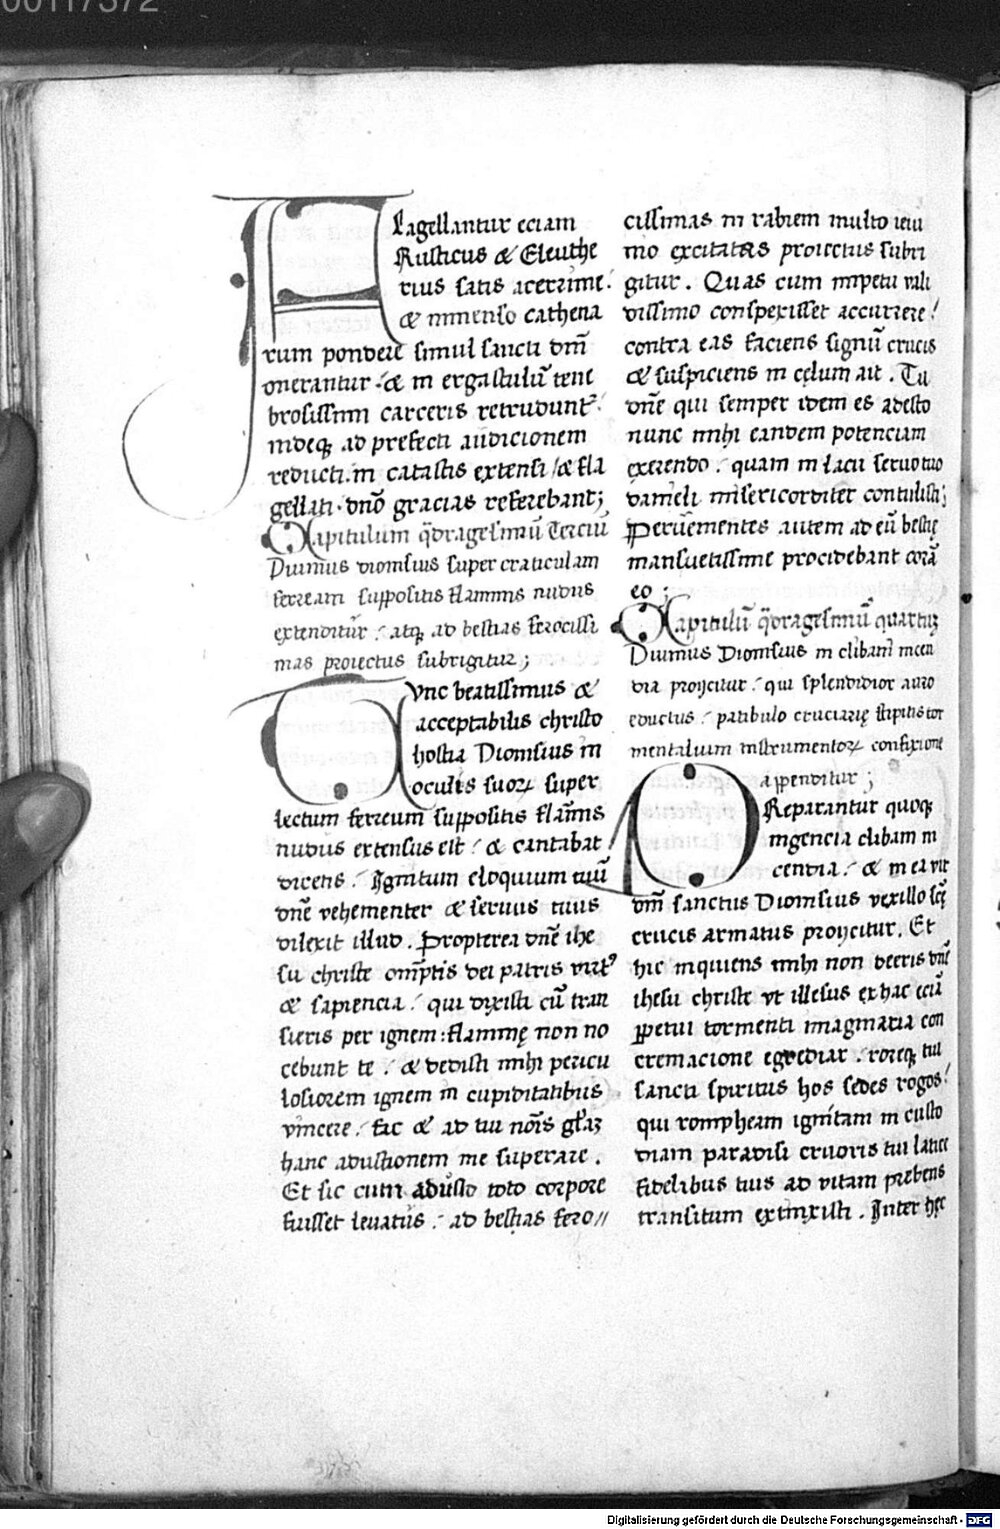 00117372
Flagellantur eciam
Rusticus & Eleuthe
rius satis acerrime:
& inmenso cathena
rum pondere simul sancti dm̄
onerantur: & in ergastulū tene
brosissimi carceris retrudunt᷑:
indeq; ad prefecti audicionem
reducti. in catastis extensi / & fla
gellati. dn̄o gracias referebant;
Capitulum q̄dragesimū Terciū
Diuinus dionisius super craticulam
ferream suppositis flammis nudus
extenditur: atq; ad bestias ferocissi
mas proiectus subrigitur;
Tunc beatissimus &
acceptabilis christo
hostia Dionisius in
oculis suoꝝ super
lectum ferreum suppositis flām̄is
nudus extensus est: & cantabat
dicens: Ignitum eloquium tuū
dn̄e vehementer & seruus tuus
dilexit illud. Propterea dn̄e ihe
su christe om̄ptis dei patris virt᷒
& sapiencia: qui dixisti cū tran
sieris per ignem: flammę non no
cebunt te: & dedisti mihi pericu
losiorem ignem in cupiditatibus
vincere: fac & ad tui nōis gl̄az
hanc adustionem me superare.
Et sic cum adusto toto corpore
fuisset leuatus: ad bestias fero//
cissimas in rabiem multo ieiu
nio excitatas proiectus subri
gitur. Quas cum impetu vali
dissimo conspexisset accurrere:
contra eas faciens signū crucis
& suspiciens in cęlum ait. Tu
dn̄e qui semper idem es adesto
nunc mihi eandem potenciam
exerendo: quam in lacu seruo tuo
danieli misericorditer contulisti;
Peruēientes autem ad eū bestię
mansuetissime procidebant corā
eo;
Capitulū q̄dragesimū quartuꝫ
Diuinus Dionisius in clibani incen
dia proijcitur: qui splendidior auro
eductus: patibulo cruciarię stipitis tor
mentalium instrumentoꝝ confixione
appenditur;
Preparantur quoq;
ingencia clibani in
cendia: & in ea vir
dm̄ sanctus Dionisius vexillo scę
crucis armatus proijcitur. Et
hic inquiens mihi non deeris dn̄e
ihesu christe vt illesus ex hac eciā
ꝑpetui tormenti imaginaria con
cremacione egrediar: roreq; tui
sancti spiritus hos sedes rogos:
qui rompheam ignitam in custo
diam paradisi cruoris tui latice
fidelibus tuis ad vitam prebens
transitum extinxisti. Inter hęc
Digitalisierung gefördert durch die Deutsche Forschungsgemeinschaft - DFG